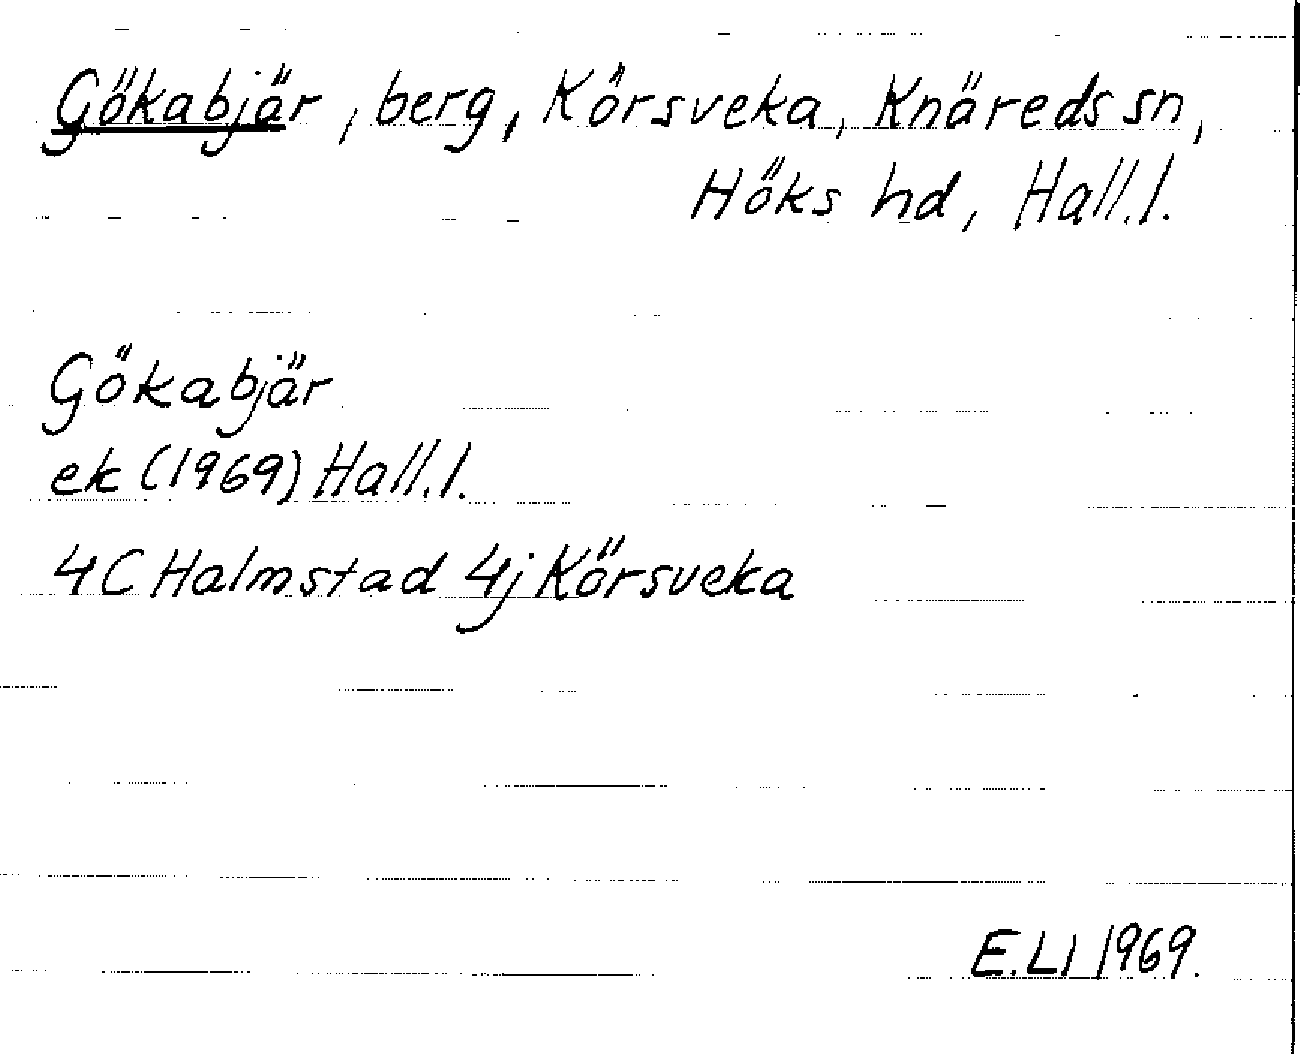 Gökabjär, berg, Körsveka, Knäreds sn,
Höks hd, Hall.l.
Gökabjär
ek (1969) Hall.l.
4C Halmstad 4j Körsveka
E.Ll 1969.